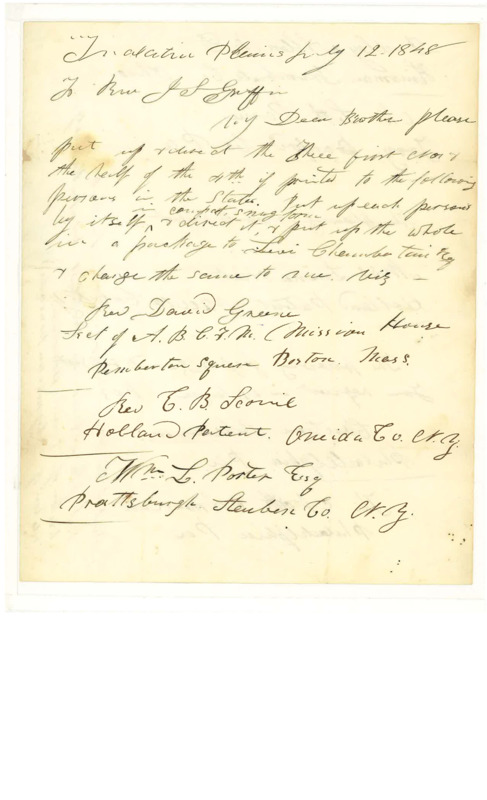 Tualatin Plains July 12. 1848
To Rev J S Griffin
My Dear Brother please
put up & direct the three first Nos &
the half of the 4th if printed to the following
persons in the States. Put up each persons
in compact, snug form
by itself, & direct it, & put up the whole
in a package to Levi Chamberlain Esq
& charge the same to me. Viz –
Rev David Greene
Sect of A. B. C. F. M. (Mission House
Pemberton Square Boston. Mass.
Rev C. B.
Holland Patent. Oneida Co. N. Y.
Wm L. Porter Esq
Prattsburgh Steuben Co. N. Y.